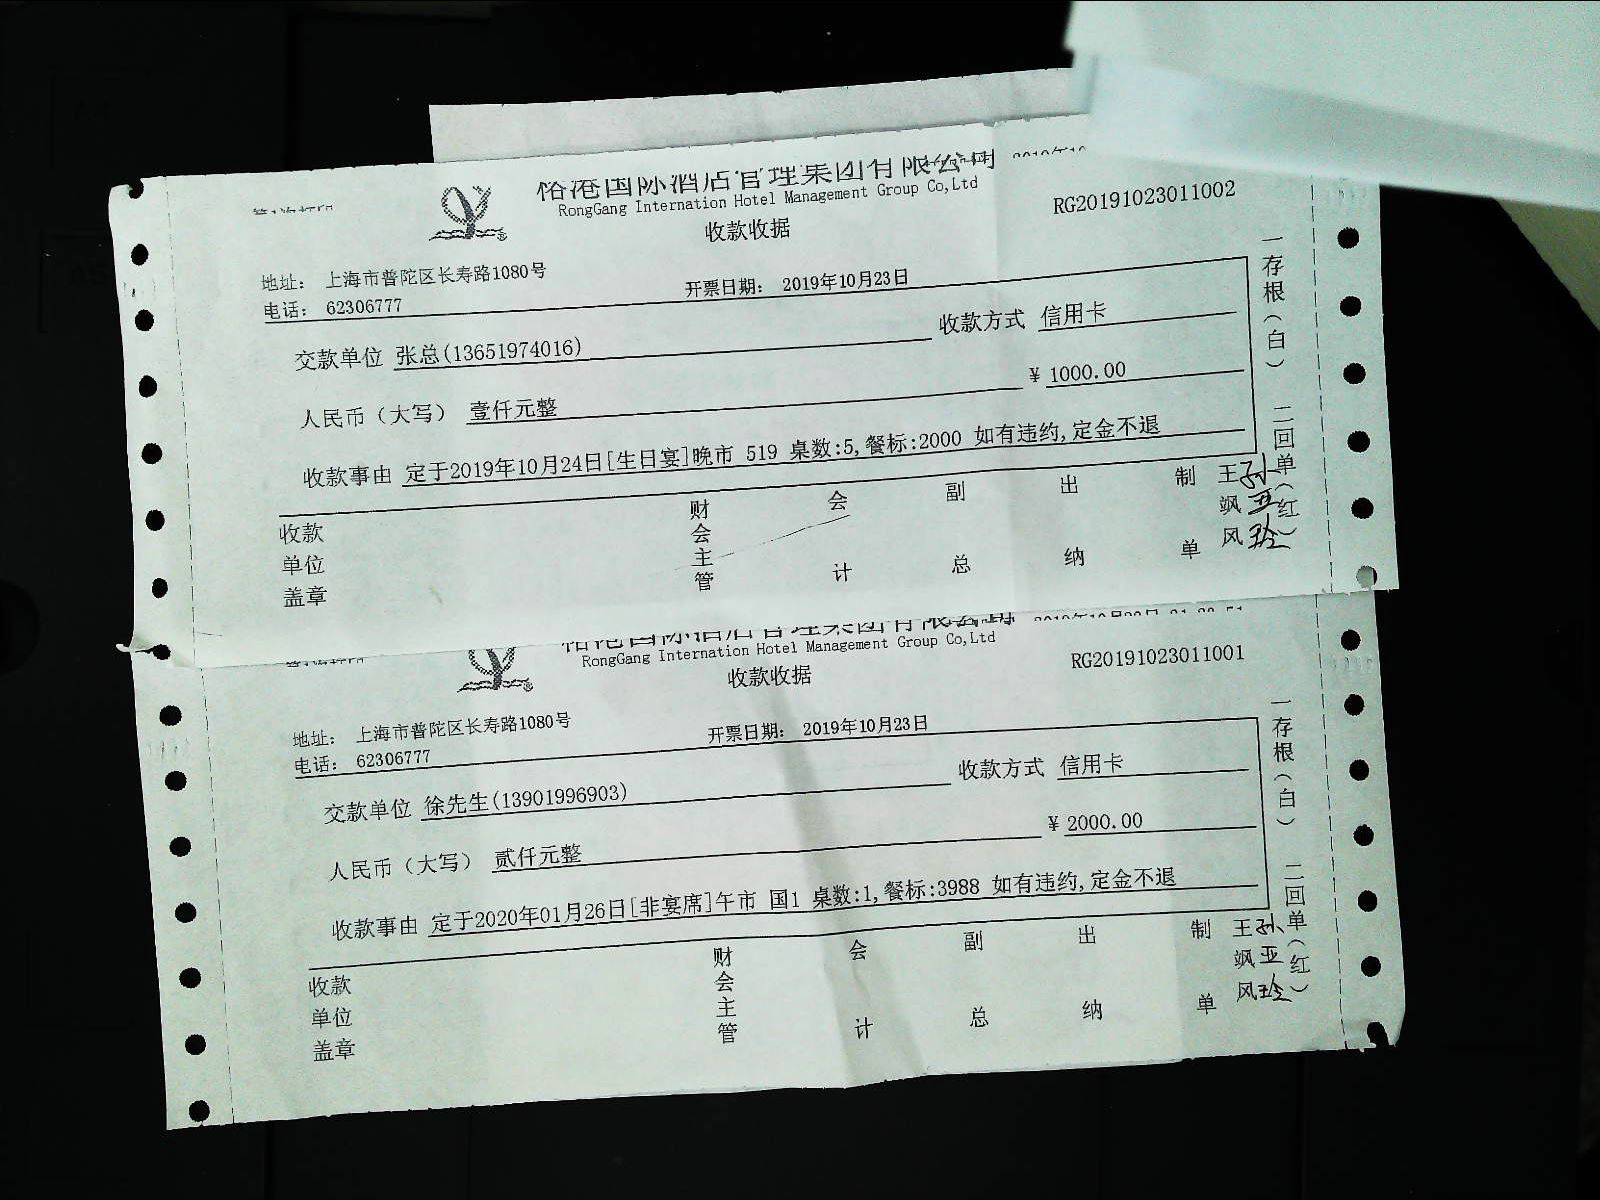 国际酒店管理集团有限公司
RongGang Internation Hotel Management Group Co,Ltd
收款收据
RG20191023011002
地址： 上海市普陀区长寿路1080号
电话： 62306777
开票日期： 2019年10月23日
交款单位 张总(13651974016)
收款方式 信用卡
人民币（大写） 壹仟元整
¥ 1000.00
收款事由 定于2019年10月24日[生日宴]晚市 519 桌数:5,餐标:2000 如有违约,定金不退
收款单位盖章
财会主管
会计
副总
出纳
制单
王飒风
孙亚玲
一存根（白） 二回单（红）
RongGang Internation Hotel Management Group Co,Ltd
收款收据
RG20191023011001
地址： 上海市普陀区长寿路1080号
电话： 62306777
开票日期： 2019年10月23日
交款单位 徐先生(13901996903)
收款方式 信用卡
人民币（大写） 贰仟元整
¥ 2000.00
收款事由 定于2020年01月26日[非宴席]午市 国1 桌数:1,餐标:3988 如有违约,定金不退
收款单位盖章
财会主管
会计
副总
出纳
制单
王飒风
孙亚玲
一存根（白） 二回单（红）